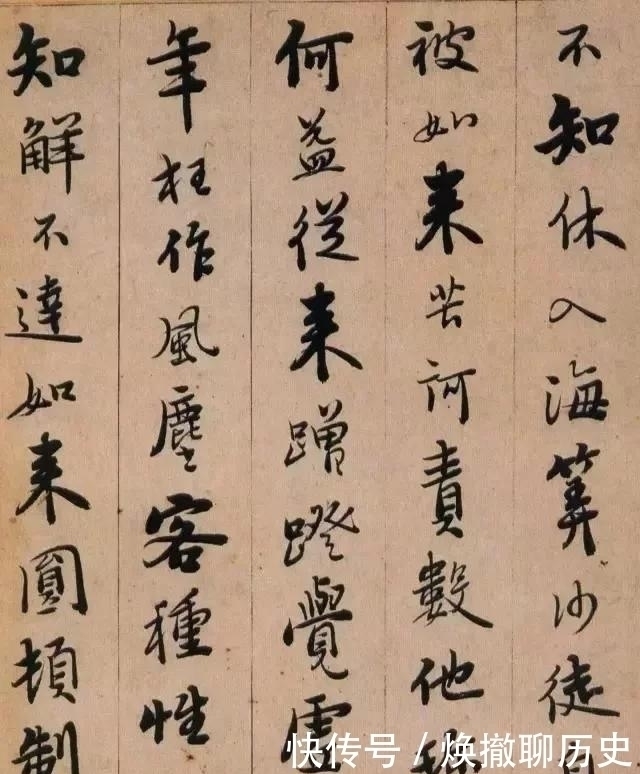 不知休入海筭沙徒
被如来苦訶責數他珍
何益從来蹭蹬覺虛
年枉作風塵客種性
知解不達如来圓頓制
快传号 / 焕撤聊历史